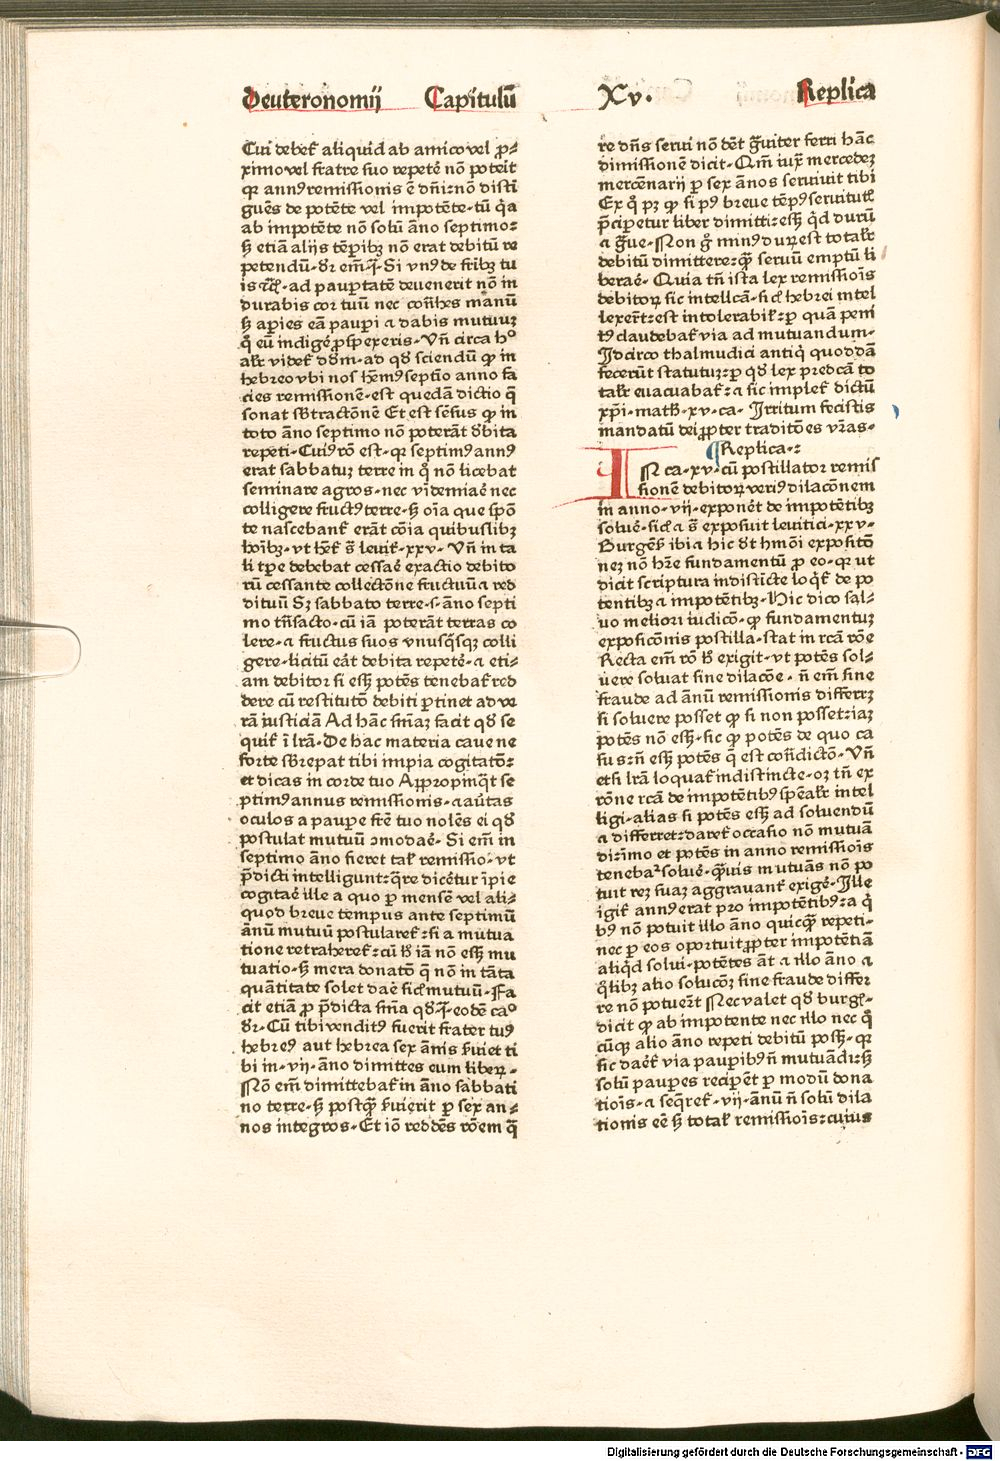 Deuteronomij Capitulū Xv. Replica
Cui debet̄ aliquid ab amico vel ꝓ⸗
ximo vel fratre suo repetē nō poteit
qr annꝰ remissionis ē dn̄i: nō disti
guēs de potēte vel impotēte. tū q̄a
ab impotēte nō solū āno septimo:
sꝫ etiā alijs tēpibꝫ nō erat debitū re
petendū. dr̄ em̄. j. Si vnꝰ de fribꝫ tu
is ad paupertatē deuenerit nō in
durabis cor tuū nec cont̄hes manū
sꝫ aꝑies eā pauꝑi ⁊ dabis mutuuꝫ
q̄ eū indigē ꝓspexeris. Vn̄ circa hͦ
alr̄ videt̄ dd̄m. ad qd̄ sciendū ꝙ in
hebreo vbi nos hēmꝰ septīo anno fa
cies remissionē. est quedā dictio q̄
sonat sb̄tractōnē Et est sēsus ꝙ in
toto āno septimo nō poterāt d̄bita
repeti. Cuiꝰ rō est. qr septimꝰ annꝰ
erat sabbatuꝫ terre in q̄ nō licebat
seminare agros. nec vīdemiaē nec
colligere fructꝰ terre. sꝫ oīa que spō
te nascebant̄ erāt cōia quibuslibꝫ
hoībꝫ. vt hēt̄ s̄ leuit̄. xxv. Vn̄ in ta
li tpe debebat cessaē exactio debito
rū cessante collectōne fructuū ⁊ red
dituū Sꝫ sabbato terre. s. āno septi
mo trāsacto. cū iā poterāt terras co
lere. ⁊ fructus suos vnusq̄sqꝫ colli
gere. licitū eāt debita repetē. ⁊ eti⸗
am debitor si esꝫ potēs tenebat̄ red
dere cū restitutō debiti ꝑtinet ad ve
rā iusticiā Ad hāc sn̄iaꝫ facit qd̄ se
quit̄ ī lr̄a. De hac materia caue ne
forte sb̄repat tibi impia cogitatō:
et dicas in corde tuo Appropinq̄t se
ptimꝰ annus remissionis. ⁊ au̇tas
oculos a paupe fr̄e tuo nolēs ei qd̄
postulat mutuū ɔmodaē. Si em̄ in
septimo āno fieret tal̄ remissio. vt
p̄dicti intelligunt: q̄re dicēt̄ur īpie
cogitaē ille a quo ꝑ mensē vel ali⸗
quod breue tempus ante septimū
ānū mutuū postularet̄: si a mutua
tione retraheret̄: cū b̄ iā nō esꝫ mu
tuatio. sꝫ mera donatō q̄ nō in tāta
quātitate solet daē sicl̄ mutuū. Fa
cit etiā ꝓ p̄dicta sn̄ia qd̄. j. eodē caͦ
dr̄. Cū tibi venditꝰ fuerit frater tuꝰ
hebreꝰ aut hebrea sex ānis s̄uiet ti
bi in. vij. āno dimittes eum liberꝫ.
Nō em̄ dimittebat̄ in āno sabbati
no terre. sꝫ postq̄ꝫ s̄uierit ꝑ sex an⸗
nos integros. Et iō reddēs rōem q̄
re dn̄s serui nō dēt ḡuiter ferri hāc
dimissionē dicit. Qm̄ iux̄ mercedeꝫ
mercēnarij ꝑ sex ānos seruiuit tibi
Ex q̄ pꝫ ꝙ si pꝰ breue tēpꝰ seruitutē
p̄ciperetur liber dimitti: esꝫ q̄d durū
⁊ ḡue. Non ḡ minꝰ durꝫ est totalr̄
debitū dimittere: q̄ꝫ seruū emptū li
beraē. Quia tn̄ ista lex remissiois
debitorꝫ sic intellcā. sicl̄ hebrei intel
lexer̄t: est intolerabil̄: ꝑ quā peni
tꝰ claudebat̄ via ad mutuandum.
Idcirco thalmudici antiq̄ quoddā
fecerūt statutuꝫ: ꝑ qd̄ lex predcā to
tal̄r euacuabat̄: ⁊ sic implet̄ dictū
xp̄i. math̄. xv. ca. Irritum fecistis
mandatū dei ꝓpter traditōes vr̄as.
¶ Replica.:
IN ca. xv. cū postillator remis
sionē debitorꝫ veriꝰ dilacōnem
in anno. vij. exponēt de impotētibꝫ
soluē. sicl̄ ⁊ s̄ exposuit leuitici. xxv.
Burgēs̄ ibi ⁊ hic dt̄ hmōi expositō
neꝫ nō hr̄e fundamentū ꝓ eo. qr vt
dicit scriptura indistīcte loq̄t̄ de po
tentibꝫ ⁊ impotētibꝫ. Hic dico sal⸗
uo meliori iudicō. ꝙ fundamentuꝫ
exposicōnis postilla. stat in rcā rōe
Recta em̄ rō h̄ exigit. vt potēs sol⸗
uere soluat sine dilacōe. n̄ em̄ sine
fraude ad ānū remissionis differrꝫ
si soluere posset ꝙ si non posset: iaꝫ
potēs nō esꝫ. sic ꝙ potēs de quo ca
sus: n̄ esꝫ potēs q̄ est con̄dictō. Vn̄
etsi lr̄a loquat̄ indistincte. oꝫ tn̄ ex
rōne rcā de impotētibꝰ sp̄ealr̄ intel
ligi. alias si potēs esꝫ ad soluendū
⁊ differret: daret̄ occasio nō mutuā
di: īmo et potēs in anno remissiois
tenebaꝛ soluē. q̄uis mutuās nō po
tuit reꝫ suaꝫ aggrauant̄ exigē. Ille
igit̄ annꝰ erat pro impotētibꝰ: ⁊ q̄
bꝰ nō potuit illo āno quicq̄ꝫ repeti.
nec ꝑ eos oportuit ꝓpter impotētiā
aliq̄d solui. potētes āt ⁊ illo āno ⁊
q̄libꝫ alio solucōꝫ sine fraude differ
re nō potuēt Nec valet qd̄ burgēs̄.
dicit ꝙ ab impotente nec illo nec q̄
cūqꝫ alio āno repeti debitū posꝫ. qr
sic daēt̄ via pauꝑibꝰ n̄ mutuādi: sꝫ
solū pauꝑes reciꝑēt ꝑ modū dona
tiois. ⁊ seq̄ret̄. vij. ānū n̄ solū dila
tionis eē sꝫ total̄ remissiois: cuius
Digitalisierung gefördert durch die Deutsche Forschungsgemeinschaft - DFG